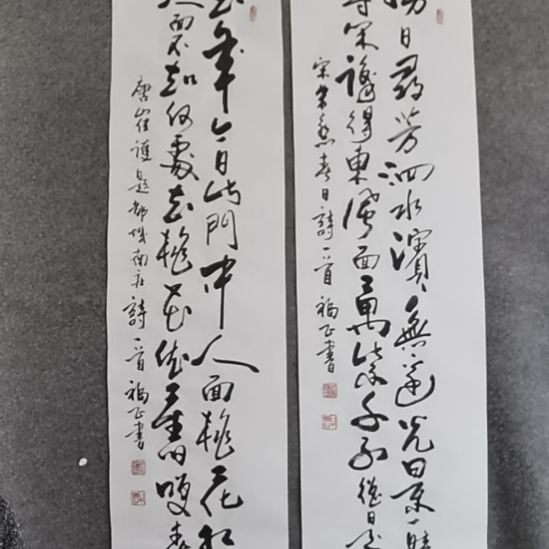 勝日尋芳泗水濱無邊光景一時
等閑識得東風面萬紫千紅總是
宋朱熹春日詩一首 福正書
去年今日此門中人面桃花相
人面不知何處去桃花依舊笑春
唐崔護題都城南庄詩一首 福正書